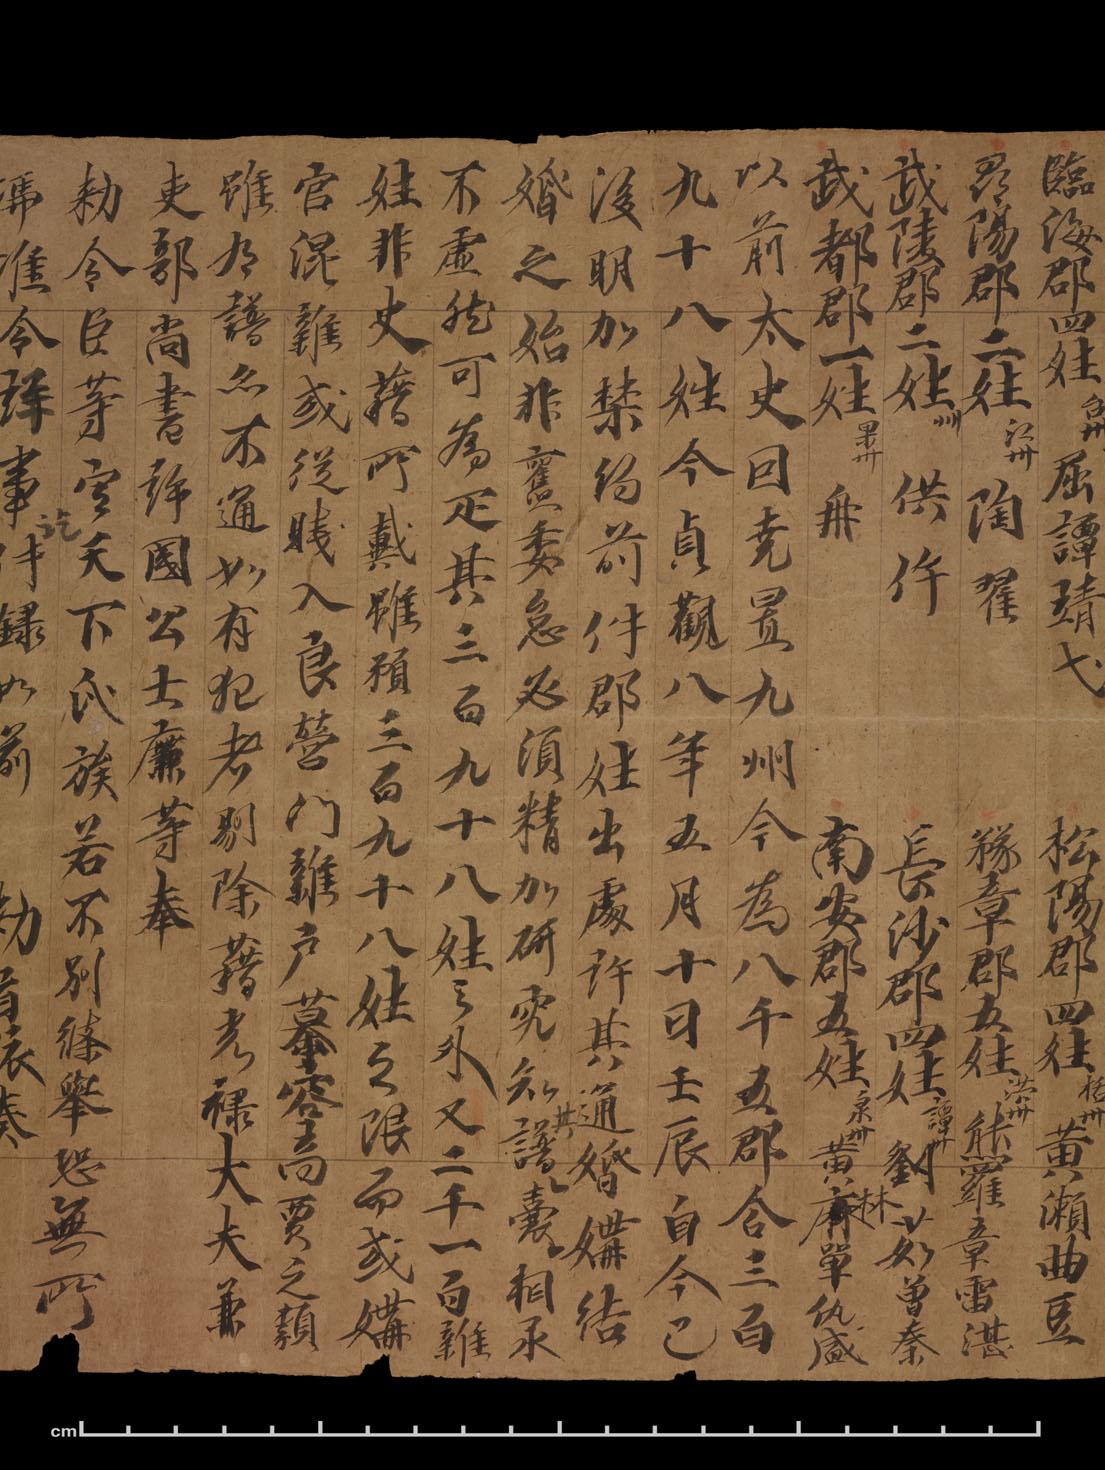 臨海郡四姓 台州 屈譚靖弋 松陽郡四姓 括州 黄瀬曲豆
尋陽郡二姓 江州 陶翟 豫章郡五姓 洪州 熊羅章雷湛
武陵郡二姓 州 供仵 長沙郡四姓 譚州 劉茹曾秦
武都郡一姓 果州 冉 南安郡五姓 泉州 黄林單仇盛
以前太史因堯置九州今為八千五郡合三百
九十八姓今貞觀八年五月十日壬辰自今已
後明加禁約前件郡姓出處許其通婚媾結
婚之始非舊委怠必須精加研究知其譜囊相承
不虚然可為疋其三百九十八姓之外又二千一百雜
姓非史籍所戴雖預三百九十八姓之限而或媾
官混雜或從賤入良營門雜户慕容商賈之類
雖有譜亦不通如有犯者剔除籍光禄大夫兼
吏部尚書許國公士廉等奉
勅令臣等定天下氏族若不別條舉恐無所
憑准令詳事訖件録如前 勅旨依奏